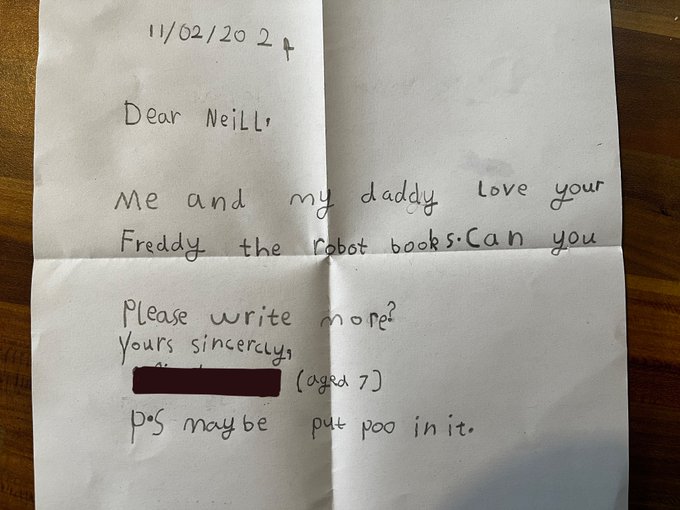 11/02/2024
Dear Neill,
Me and my daddy love your
Freddy the robot books. Can you
Please write more?
Yours sincerely,
(aged 7)
P.S maybe put poo in it.